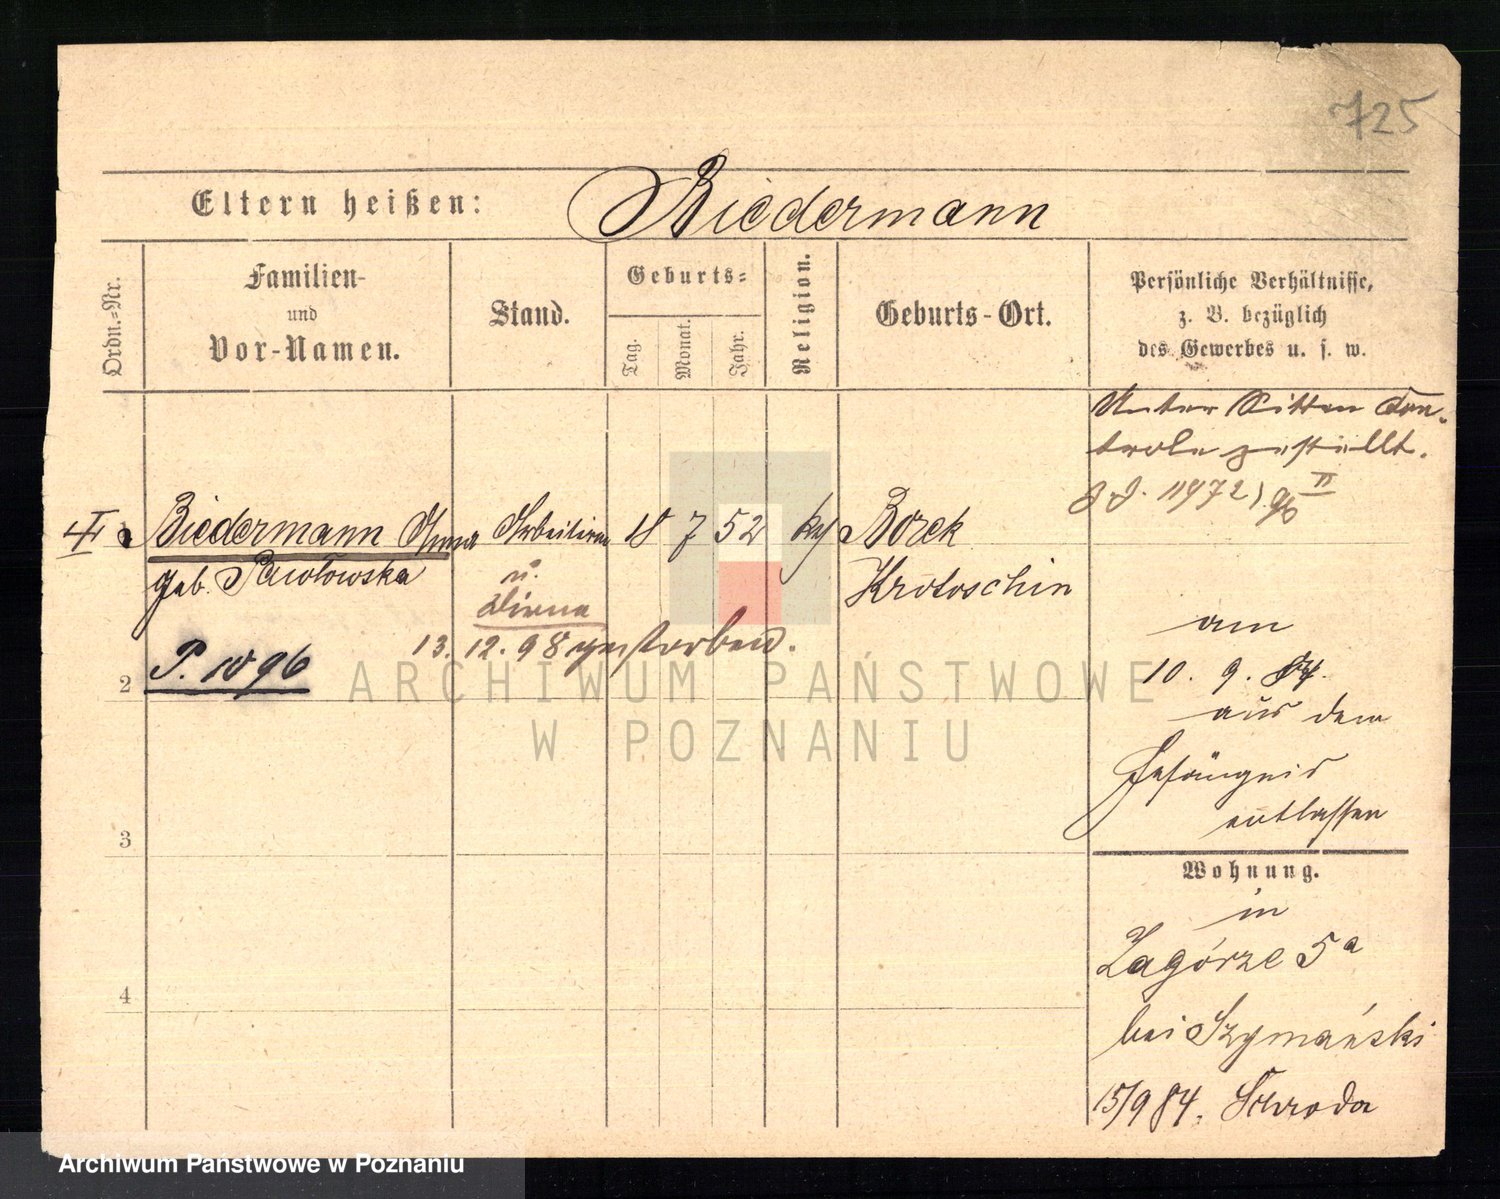 725
Eltern heißen: Biedermann
Ordn.-Nr.
Familien-
und
Vor-Namen.
Stand.
Geburts-
Tag.
Monat.
Jahr.
Religion.
Geburts-Ort.
Persönliche Verhältnisse,
z. B. bezüglich
des Gewerbes u. s. w.
Unter Sitten Con-
trole gestellt.
1 Biedermann Anna Arbeiterin 18 7 52 Borek
geb. Pawlowska u. Krotoschin
Dirne
13. 12. 98 gestorben.
P. 1896
2
am
10. 9. 84.
aus dem
Gefängnis
entlassen
3
Wohnung.
in
Zagórze 5a
4
bei Szymański
15/9 84. Schroda
ARCHIWUM PAŃSTWOWE
W POZNANIU
Archiwum Państwowe w Poznaniu